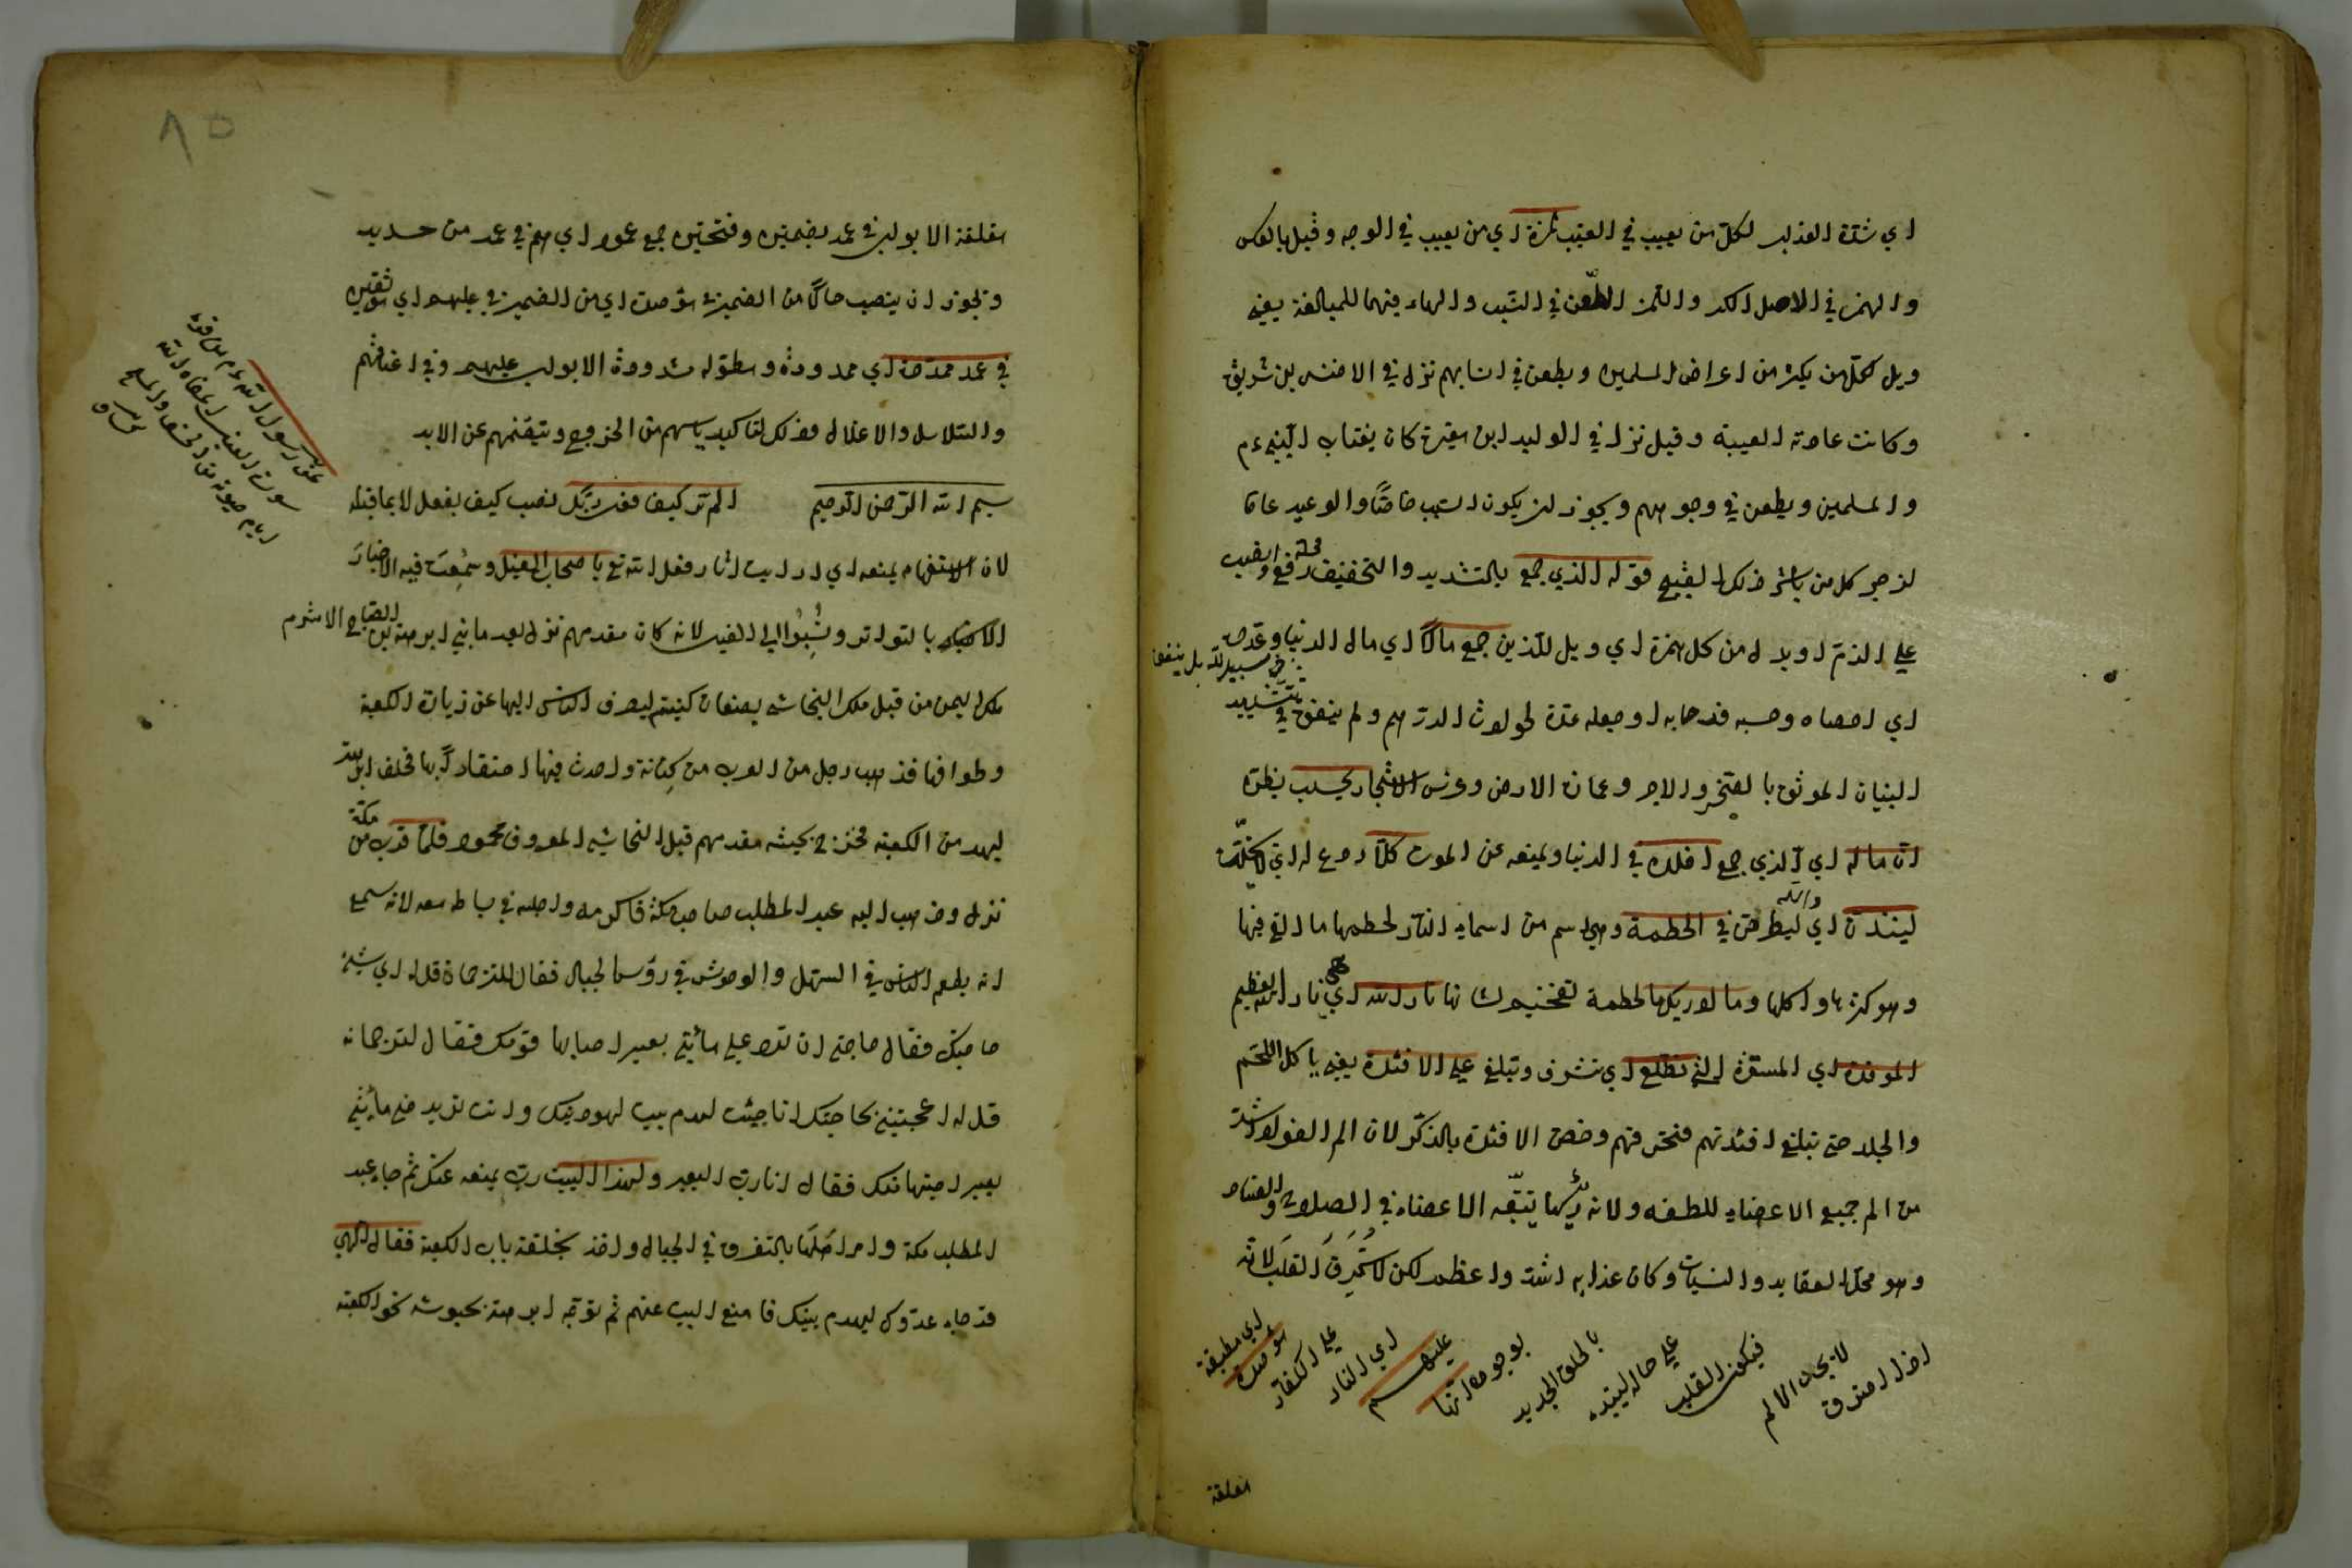 اي شدة العذاب لكل من يعيب في الغيب لمزة اي من يعيب في الوجه وقيل بالعكس
والهمز في الاصل الكسر واللمز الطعن في السبب والهاء فيهما للمبالغة يعني
ويل لكل من يكثر من اعراض المسلمين ويطعن في انسابهم نزل في الاخنس بن شريق
وكانت عادته الغيبة وقيل نزل في الوليد ابن مغيرة كان يغتاب النبي ءم
والمسلمين ويطعن في وجوههم ويجوز ان يكون السبب خاصا والوعيد عاما
لزجر كل من باشر ذلك القبيح قوله الذي جمع بالتشديد والتخفيف محله رفع او نصب
على الذم او بدل من كل همزة اي ويل للذين جمع مالا اي مال الدنيا وعدده
اي احصاه وحسبه فدحابه او جعله عدة لحوادث الدهر ولم ينفق في سبيل الله بل ينفق بتشييد
البنيان الموثق بالصخر والاجر وعمارة الارض وغرس الاشجار يحسب يظن
ان ماله اي الذي جمع اخلده في الدنيا ويمنعه عن الموت كلا ردع له اي لا يخلد
لينبذن اي والله ليطرحن في الحطمة وهي اسم من اسماء النار لحطمها ما القي فيها
وهو كسرها واكلها وما ادريك ما الحطمة تفخيم لشانها نار الله اي هي نار الله العظيم
الموقدة اي المستعرة التي تطلع اي تشرف وتبلغ على الافئدة يعني ياكل اللحم
والجلد حتى تبلغ افئدتهم فتحرقهم وخص الافئدة بالذكر لان الم الفؤاد اشد
من الم جميع الاعضاء للطفه ولانه رئيسها يتبعه الاعضاء في الصلاح والفساد
وهو محل العقايد والنيات وكان عذابه اشد واعظم لكن لا تحرق القلب لانه
اذا احترق
لا يجد الالم
فيكون القلب
على حاله ليتبدل
بالخلق الجديد
بوجوه انها
عليهم
اي النار
على الكفار
مؤصدة
اي مطبقة
مغلقة
٨٥
مغلقة الابواب في عمد بضمتين وفتحتين جمع عمود اي هم في عمد من حديد
ويجوز ان ينصب حالا من الضمير في مؤصدة اي من الضمير في عليهم اي موثقين
في عمد ممددة اي ممدودة ومطولة مشدودة الابواب عليهم وفي اعناقهم
والسلاسل والاغلال وذلك لتاكيد ياسهم من الخروج وتيقنهم عن الابد
بسم الله الرحمن الرحيم الم تر كيف فعل ربك نصب كيف بفعل لا بما قبله
لان الاستفهام يمنعه اي ارايت اثار فعل الله تع باصحاب الفيل وسمعت فيه الاخبار
بالتواتر ونسبوا الى الفيل لانه كان مقدمهم نزل بعد ما بني ابرهة بن الصباح الاشرم
ملك اليمن من قبل ملك النجاشي بصنعان كنيسة ليصرف الناس اليها عن زيارة الكعبة
وطوافها فذهب رجل من العرب من كنانة واحدث فيها احتقارا بها فحلف ابرهة
ليهدمن الكعبة فخرج بجيشه مقدمهم قبل النجاشي المعروف بمحمود فلما قرب من مكة
نزل وذهب اليه عبد المطلب صاحب مكة فاكرمه واجلسه في بساط معه لانه سمع
انه يطعم الناس في السهل والوحوش في رؤس الجبال فقال للترجمان قل له اي شئ
حاجتك فقال حاجتي ان ترد علي مأيتي بعير اصابها قومك فقال لترجمانه
قل له اعجبتني بحاجتك انا جئت لهدم بيت لهو دينك وانت تريد مني مأيتي
بعير اخذتها منك فقال انا رب البعير ولهذا البيت رب يمنعه عنك ثم جاء عبد
المطلب مكة وامر اهلها بالتفرق في الجبال واخذ بحلقة باب الكعبة فقال الهي
قد جاء عدوك ليهدم بيتك فامنع البيت عنهم ثم توجه ابرهة بجيوشه نحو الكعبة
عن رسول الله ءم من قرء
سورة الفيل اعفاه الله
ايام حيوته من الخسف والمسخ